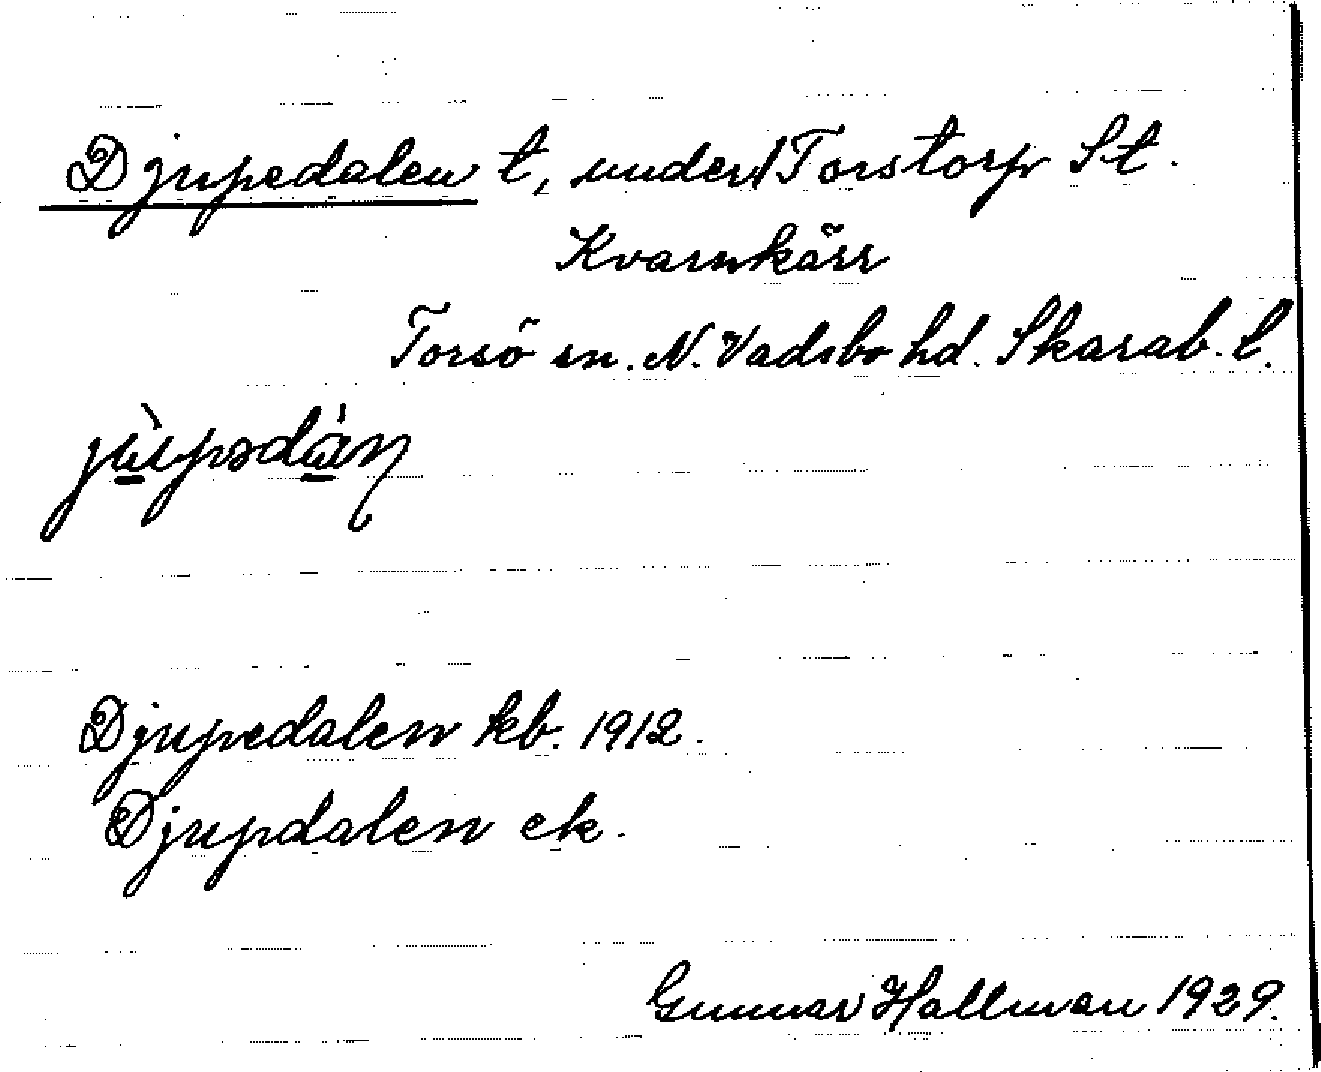 Djupedalen t, under Torstorp St.
Kvarnkärr
Torsö sn. N. Vadsbo hd. Skarab. l.
jùpədán
Djupedalen kb. 1912.
Djupdalen ek.
Gunnar Hallman 1929.